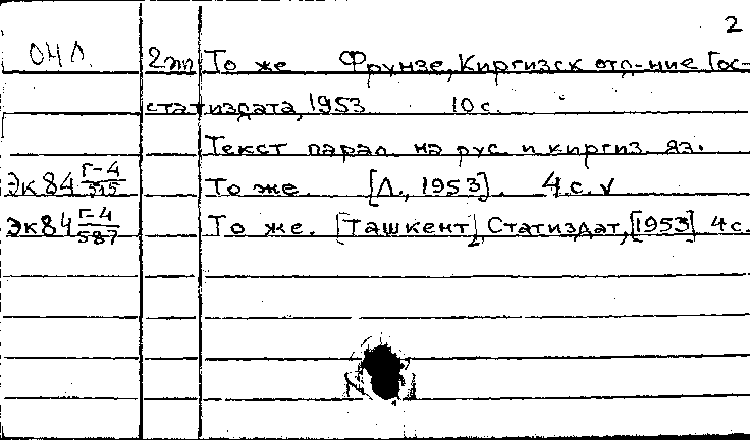 2
ОНЛ. 2эп То же Фрунзе, Киргизск отд-ние Гос-
статиздата, 1953 10 с.
Текст парал. на рус. и киргиз. яз.
Эк84 Г-4/515 То же. [Л., 1953]. 4 с. ✓
Эк84 Г-4/587 То же. [Ташкент], Статиздат, [1953] 4 с.